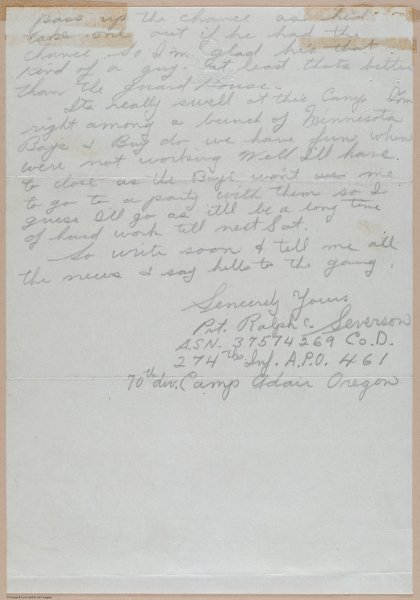 pass up the chance as he'd
take one out if he had the
chance. So I'm glad he's that
kind of a guy. at least thats better
than the guard house.
Its really swell at this Camp Im
right among a bunch of Minnesota
Boys & Buy do we have fun when
were not working Well I'll have
to close as the Boys wont me
to go to a party with them so I
guess I'll go as it'll be a long time
of hard work tell next Sat.
So write soon & tell me all
the news & say hello to the gang.
Sencerely Yours
Pvt. Ralph C. Severson
A.S.N. 37574269 Co. D.
274th Inf. A.P.O. 461
70th div. Camp Adair Oregon